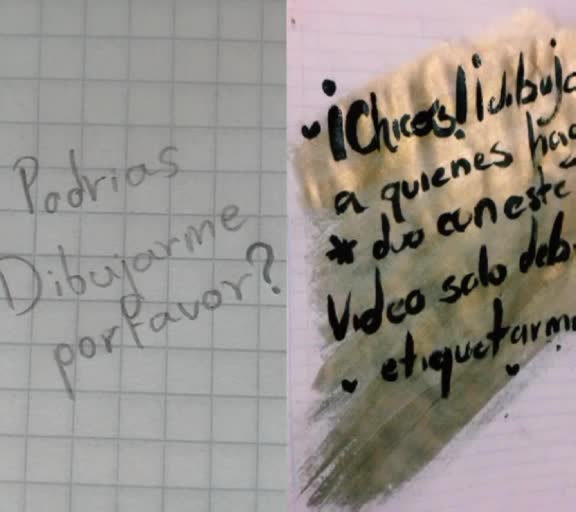 Podrias
Dibujarme
porfavor?
¡Chicos! ¡dibujo
a quienes hag
* duo con este
Video solo deb
etiquetarm